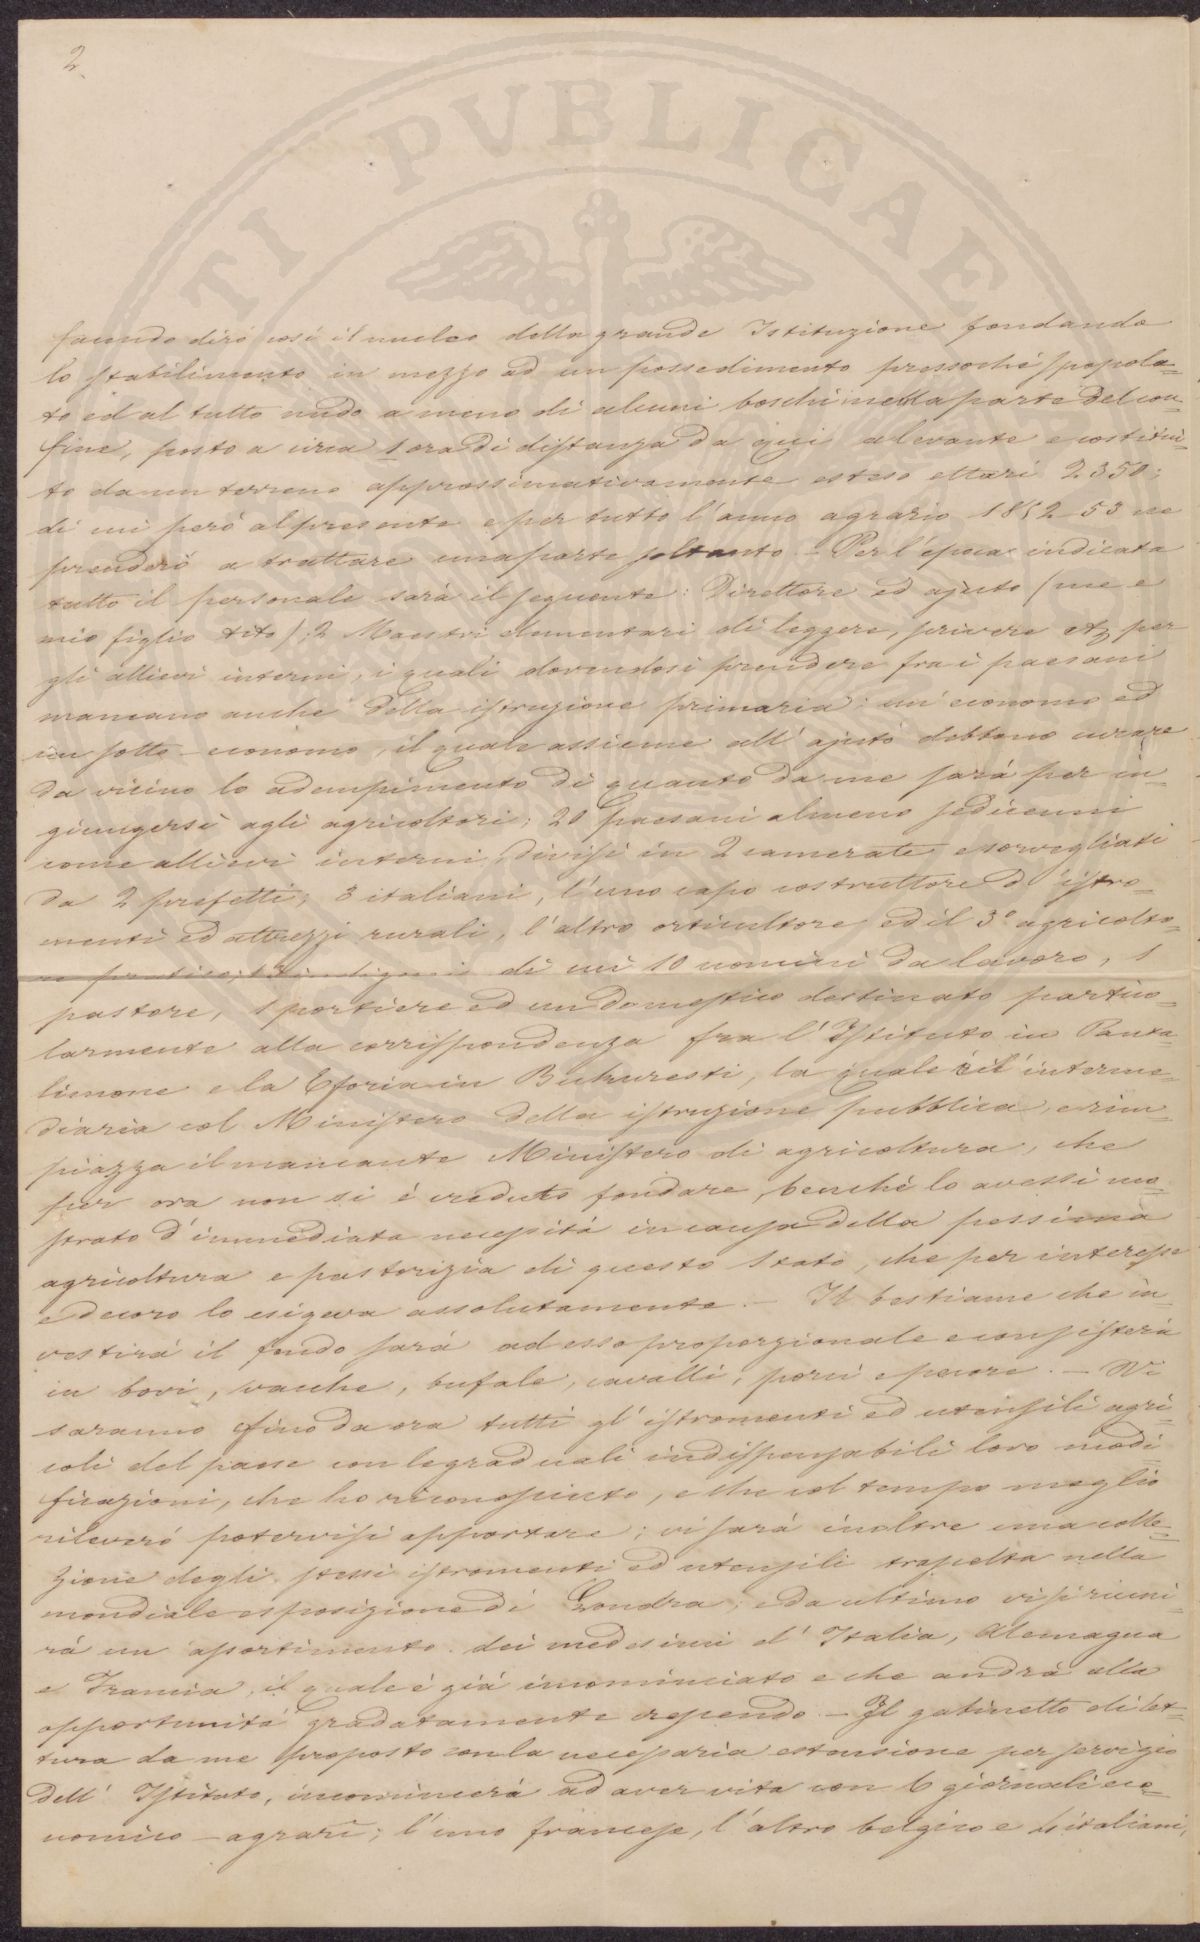 2
TI PVBLICAE
facendo dirò così il nucleo della grande Istituzione fondando
lo stabilimento in mezzo ad un possedimento pressoché spopola=
to ed al tutto nudo a meno di alcuni boschi nella parte del con=
fine, posto a circa 1 ora di distanza da qui a levante e costitui=
to da un terreno approssimativamente esteso ettari 2350;
di cui però al presente e per tutto l'anno agrario 1852 53 ne
prenderò a trattare una parte soltanto. – Per l'epoca indicata
tutto il personale sarà il seguente: Direttore ed ajuto (me e
mio figlio Tito); 2 Maestri elementari di leggere, scrivere etc per
gli allievi interni, i quali dovendosi prendere fra i paesani
mancano anche della istruzione primaria; un' economo ed
un sotto-economo, il quale assieme all' ajuto debbono curare
da vicino lo adempimento di quanto da me sarà per in=
giungersi agli agricoltori; 20 paesani almeno sedicenni
come allievi interni, divisi in 2 camerate e sorvegliati
da 2 prefetti; 3 italiani, l'uno capo costruttore d'istro=
menti ed attrezzi rurali, l'altro orticultore ed il 3° agricolto=
re pratico; indigeni di cui 10 uomini da lavoro, 1
pastore, 1 portiere ed un domestico destinato partico=
larmente alla corrispondenza fra l'Istituto in Panta=
limone e la Eforia in Bukuresti, la quale è l'interme=
diaria col Ministero della istruzione pubblica, e rim=
piazza il mancante Ministero di agricoltura, che
per ora non si è creduto fondare, benché lo avessi mo=
strato d'immediata necessità in causa della pessima
agricoltura e pastorizia di questo Stato, che per interesse
e decoro lo esigeva assolutamente. – Il bestiame che in=
vestirà il fondo sarà ad esso proporzionale e consisterà
in bovi, vacche, bufale, cavalli, porci e pecore. – Vi
saranno fino da ora tutti gl' istromenti ed utensili agri=
coli del paese con le graduali indispensabili loro modi
ficazioni, che ho riconosciuto, e che col tempo meglio
rileverò potervisi apportare; vi sarà inoltre una colle=
zione degli stessi istromenti ed utensili trascelta nella
mondiale esposizione di Londra; e da ultimo vi si riuni=
rà un assortimento dei medesimi d' Italia, Alemagna
e Francia, il quale è già incominciato e che andrà alla
opportunità gradatamente crescendo. – Il gabinetto di let=
tura da me proposto con la necessaria estensione per servigio
dell' Istituto, incomincerà ad aver vita con 6 giornali eco=
nomico-agrari; l'uno francese, l'altro belgico e 4 italiani,